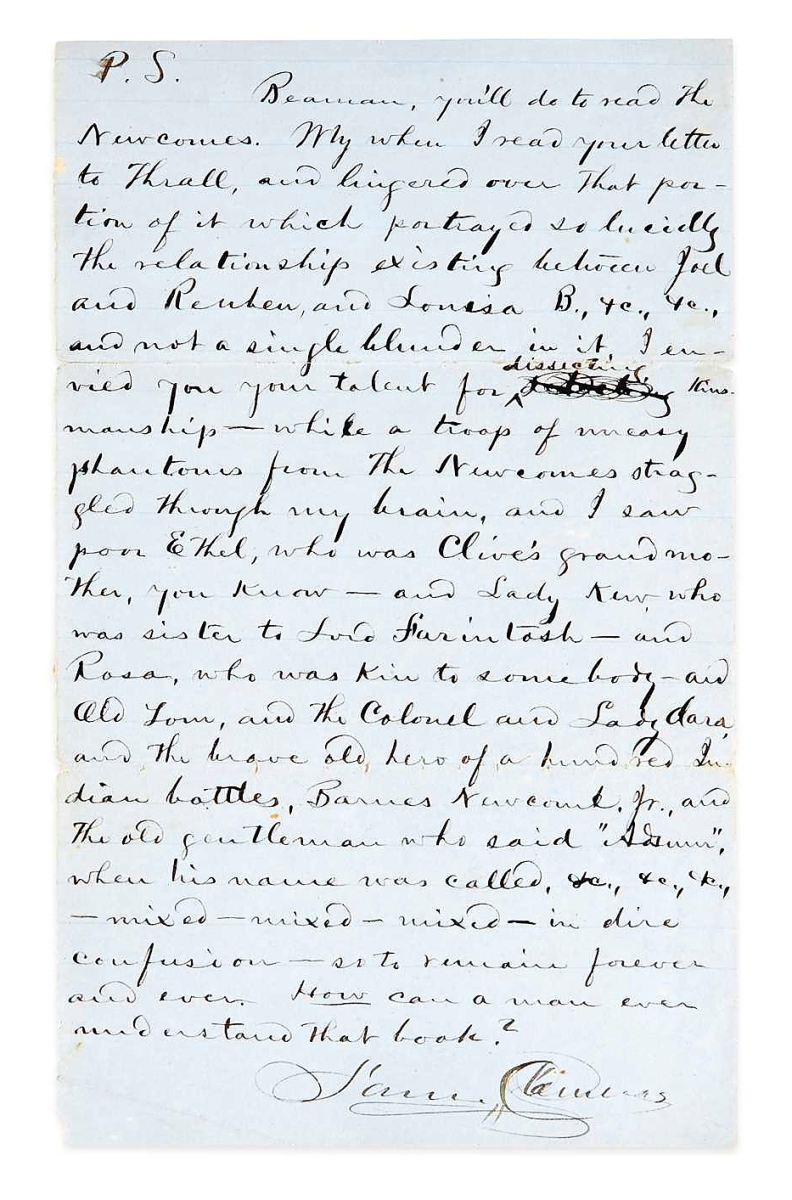 P. S.
Beaman, you'll do to read the
Newcomes. My when I read your letter
to Thrall, and lingered over that por-
tion of it which portrayed so lucidly
the relationship existing between Joel
and Reuben, and Louisa B., &c., &c.,
and not a single blunder in it, I en-
vied you your talent for dissecting kins-
manship — while a troop of uneasy
phantoms from the Newcomes strag-
gled through my brain, and I saw
poor Ethel, who was Clive's grandmo-
ther, you know — and Lady Kew, who
was sister to Lord Farintosh — and
Rosa, who was kin to somebody — and
Old Tom, and the Colonel and Lady Clara,
and the brave old hero of a hundred In-
dian battles, Barnes Newcome, Jr., and
the old gentleman who said "Adsum",
when his name was called, &c., &c., &c.,
— mixed — mixed — mixed — in dire
confusion — so to remain forever
and ever. How can a man ever
understand that book?
Sam. Clemens